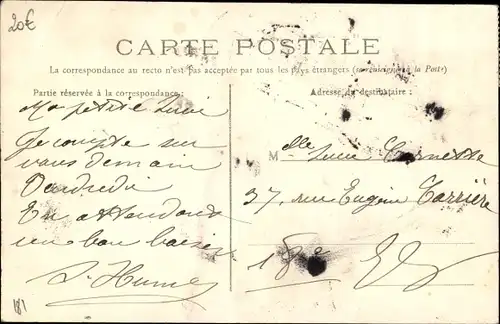 20€
CARTE POSTALE
La correspondance au recto n'est pas acceptée par tous les pays étrangers (se renseigner à la Poste)
Partie réservée à la correspondance:
Adresse du destinataire:
Ma petite
Je compte sur
vous demain
Vendredi
En attendant
un bon baiser
Mlle
37, rue Eugène Carrière
18e
181